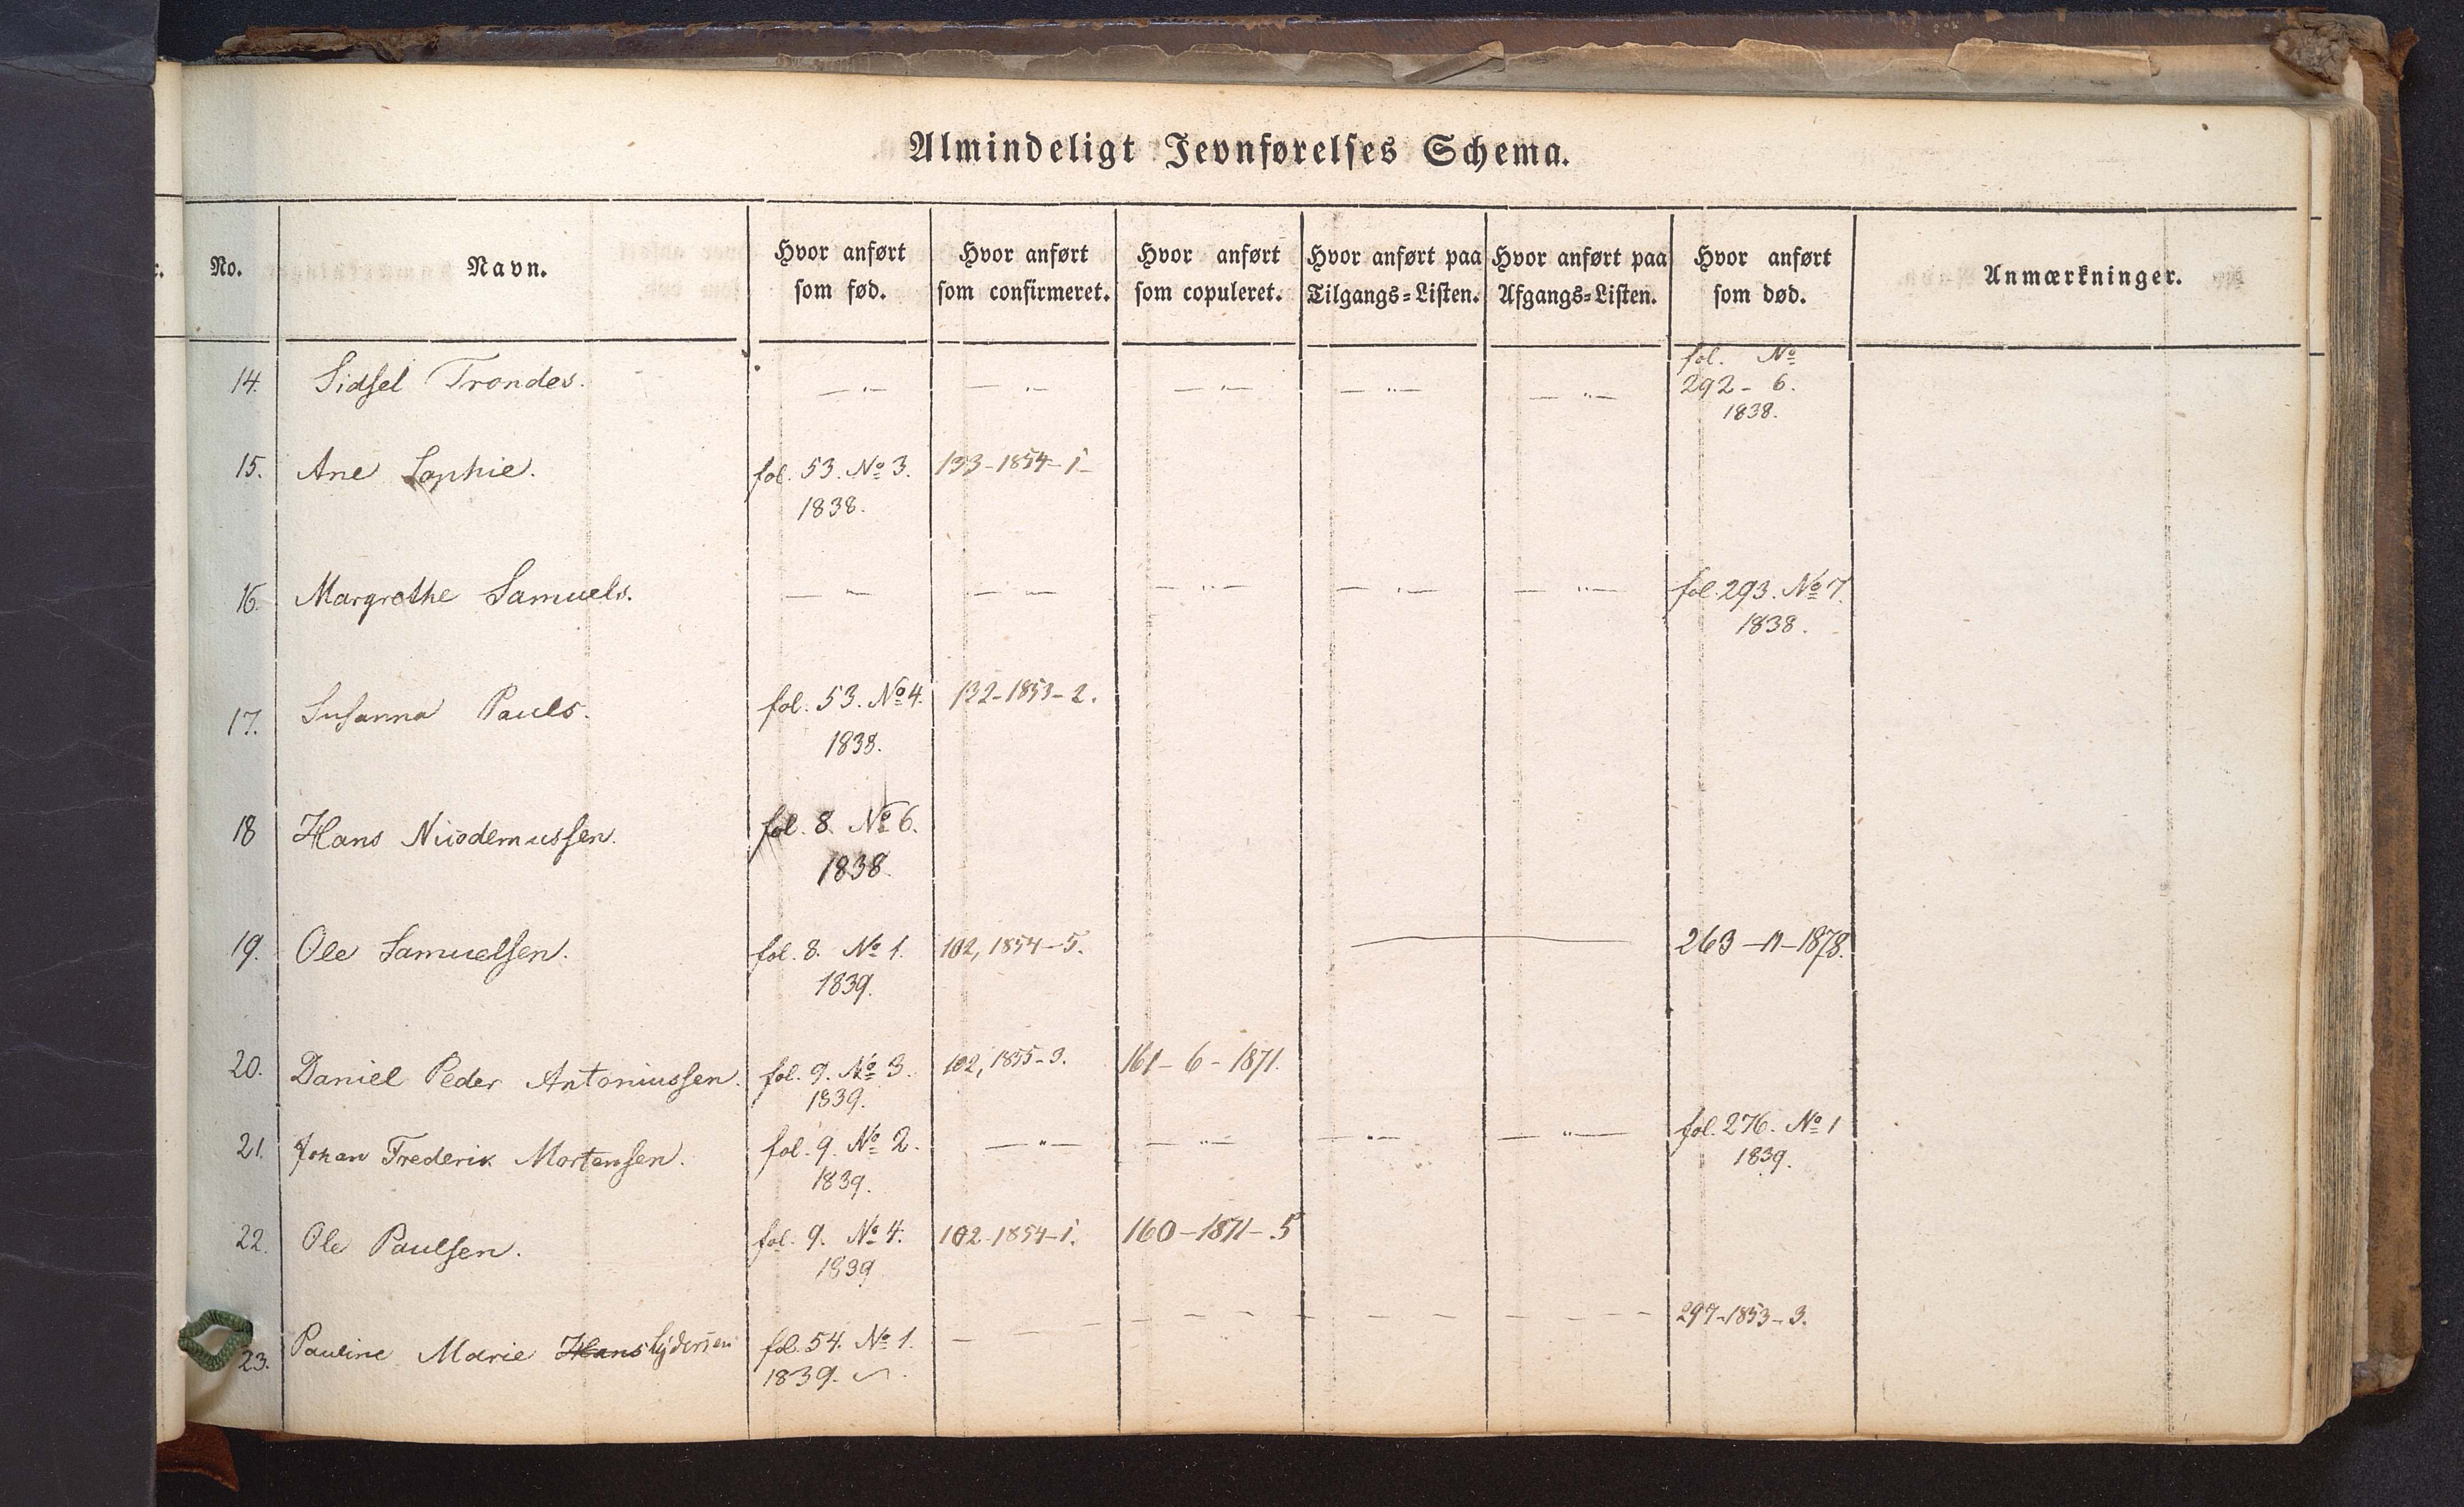 Almindeligt Jevnførelses Schema.
No. Navn. Hvor anført som fød. Hvor anført som confirmeret. Hvor anført som copuleret. Hvor anført paa Tilgangs=Listen. Hvor anført paa Afgangs=Listen. Hvor anført som død. Anmærkninger.
fol. No
14. Sidsel Trondes. — " — — " — — " — — " — — " — 292 - 6.
1838.
15. Ane Sophie. fol. 53. No 3. 133-1854-1-
1838.
16. Margrethe Samuels. — — — — — " — — " — — " — fol. 293. No 7.
1838.
17. Susanna Pauls. fol. 53. No 4. 132-1853-2.
1838.
18 Hans Nicodemussen. fol. 8. No 6.
1838.
19. Ole Samuelsen. fol. 8. No 1. 102, 1854-5. — 263-11-1878.
1839.
20. Daniel Peder Antoniussen. fol. 9. No 3. 102, 1855-3. 161-6-1871.
1839.
21. Johan Frederik Mortensen. fol. 9. No 2. — " — — " — — " — — " — fol. 276. No 1
1839. 1839.
22. Ole Paulsen. fol. 9. No 4. 102-1854-1. 160-1871-5
1839
23. Pauline Marie Hans Lydersen fol. 54. No 1. — — — — — — — — 297-1853-3.
1839.